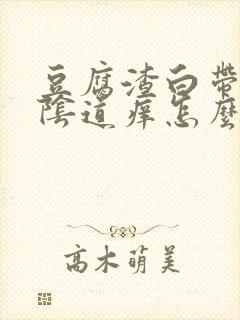 豆腐渣白帶
陰道痒怎麼
高木萌美